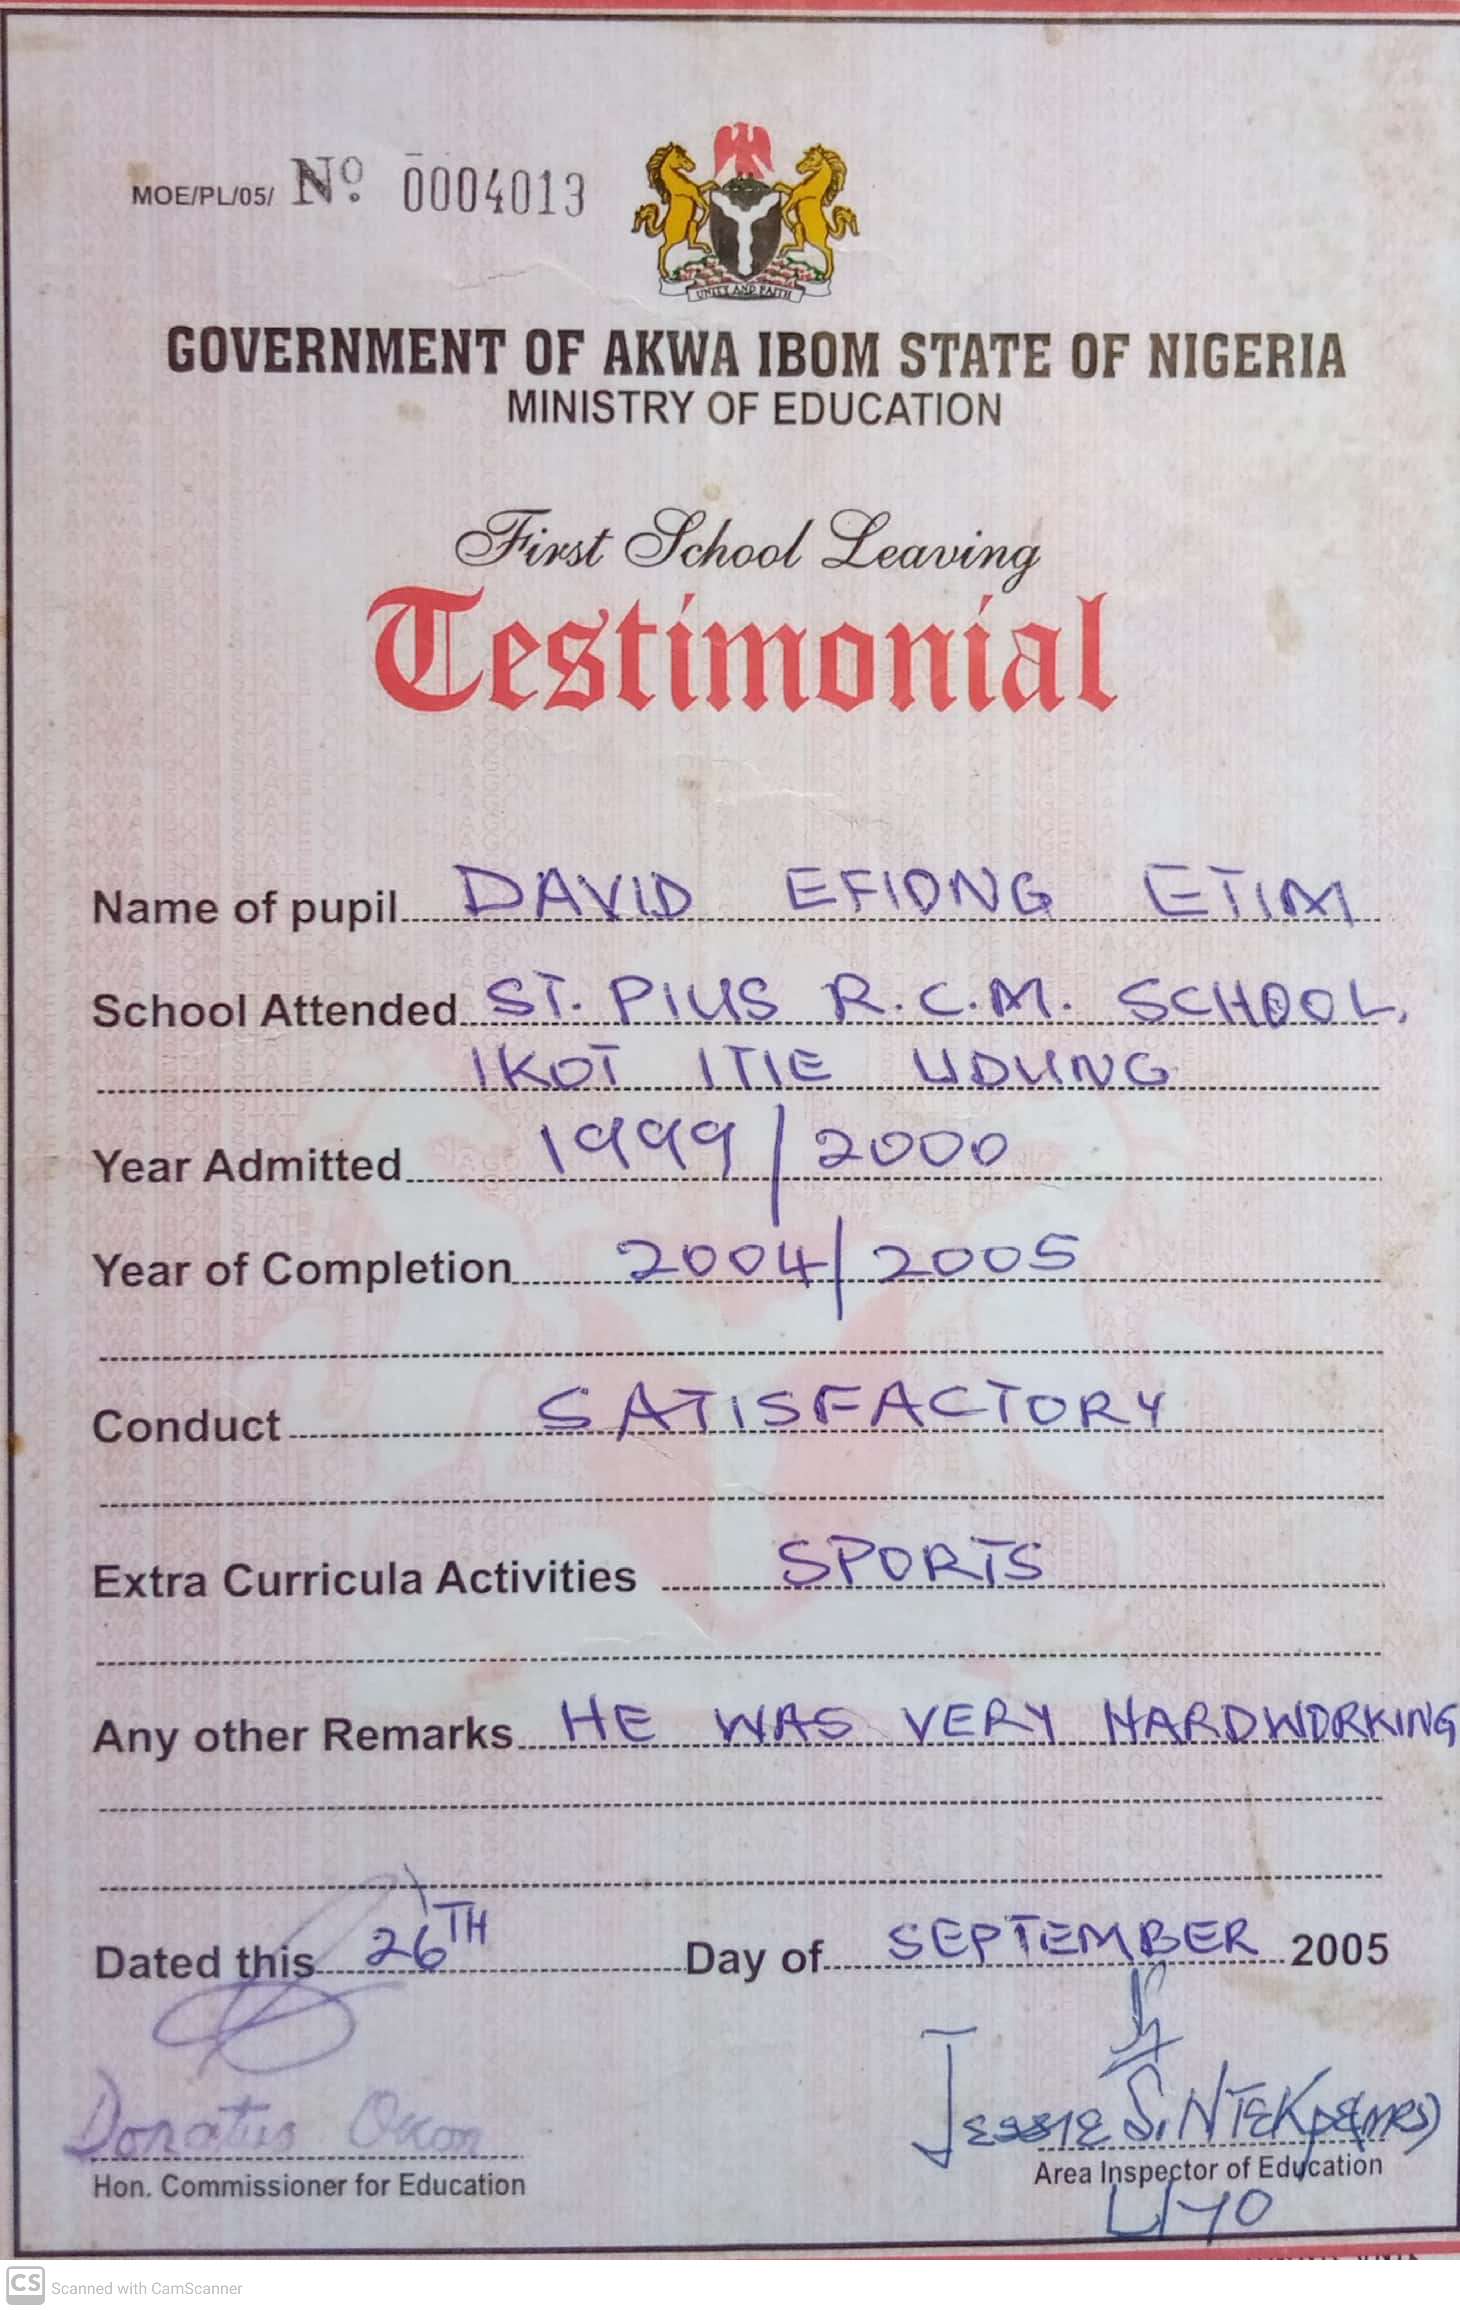 MOE/PL/05/ Nº. 0004013
UNITY AND FAITH
GOVERNMENT OF AKWA IBOM STATE OF NIGERIA
MINISTRY OF EDUCATION
First School Leaving
Testimonial
Name of pupil DAVID EFIONG ETIM
School Attended ST. PIUS R.C.M. SCHOOL,
IKOT ITIE UDUNG
Year Admitted 1999/2000
Year of Completion 2004/2005
Conduct SATISFACTORY
Extra Curricula Activities SPORTS
Any other Remarks HE WAS VERY HARDWORKING
Dated this 26TH Day of SEPTEMBER 2005
Donatus Okon
Jessie S. NTEKPE (MRS)
Hon. Commissioner for Education
Area Inspector of Education
UYO
CS Scanned with CamScanner